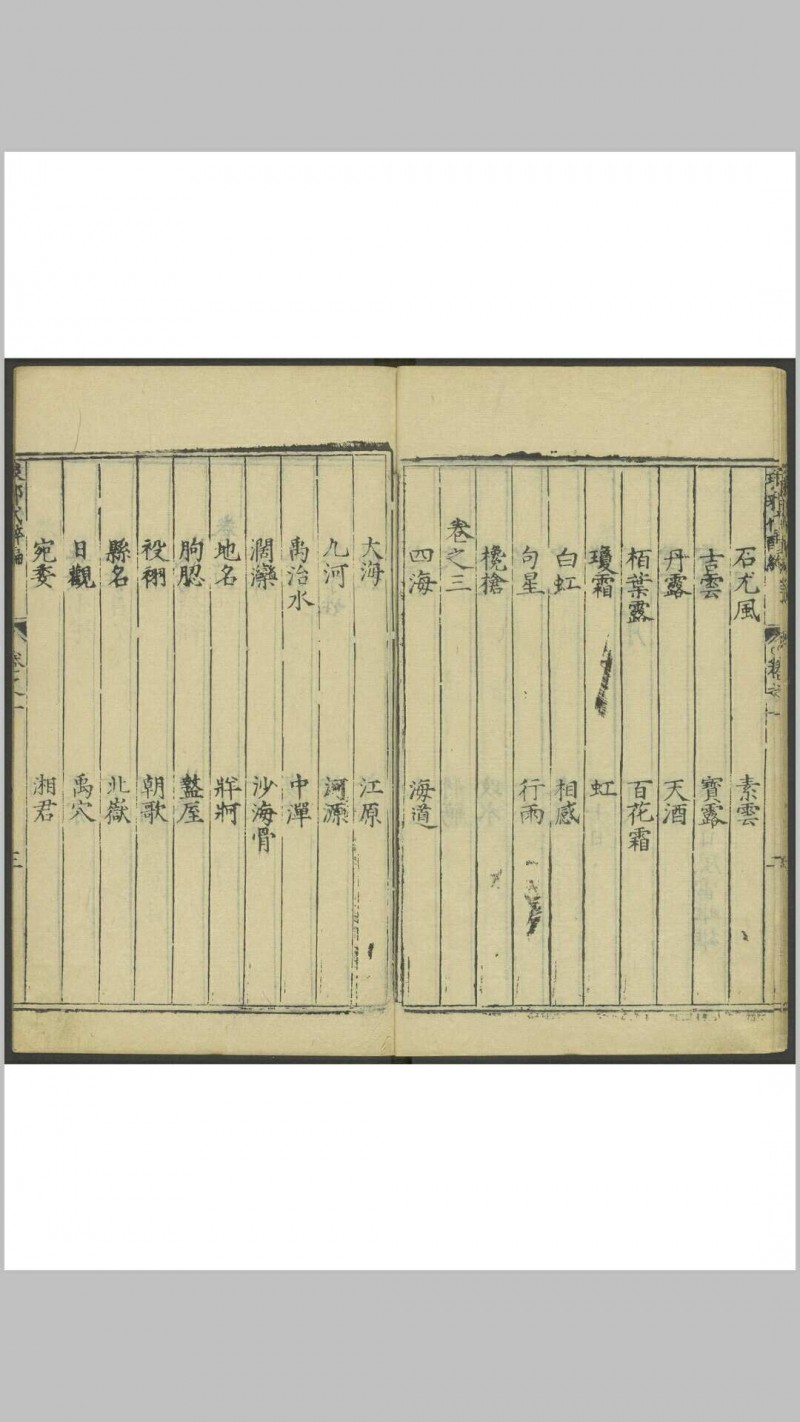 石尤風 素雲
吉雲 寳露
丹露 天酒
栢葉露 百花霜
瓊霜 虹
白虹 相感
句星 行雨
欃槍
卷之三
四海 海道
大海 江原
九河 河源
禹治水 中潬
濶灤 沙海骨
地名 牂牁
朐䏰 盩厔
祋祤 朝歌
縣名 北嶽
日觀 禹穴
宛委 湘君
三